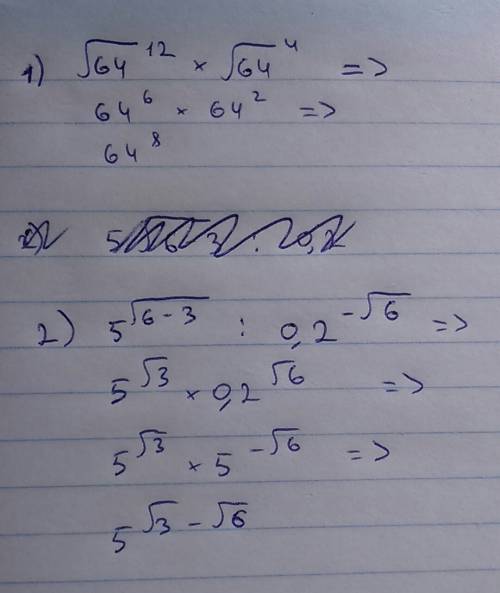 1) √64¹² × √64⁴ =>
64⁶ × 64² =>
64⁸
2) 5^√(6-3) : 0,2^-√6 =>
5^√3 × 0,2^√6 =>
5^√3 × 5^-√6 =>
5^√3 - √6